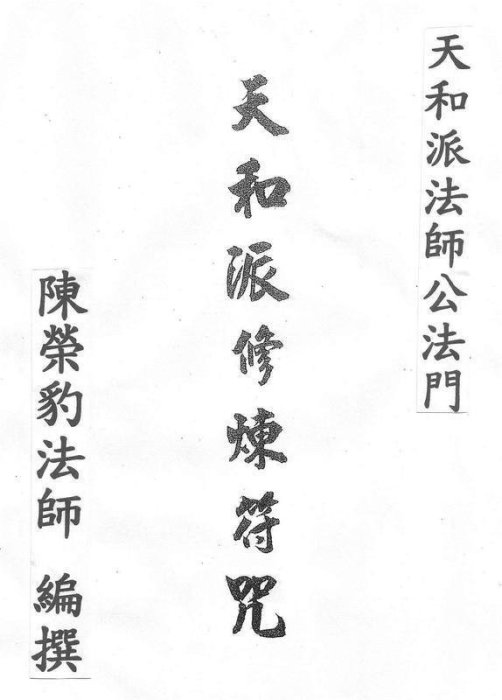 天和派法師公法門
天和派修煉符咒
陳榮豹法師 編撰